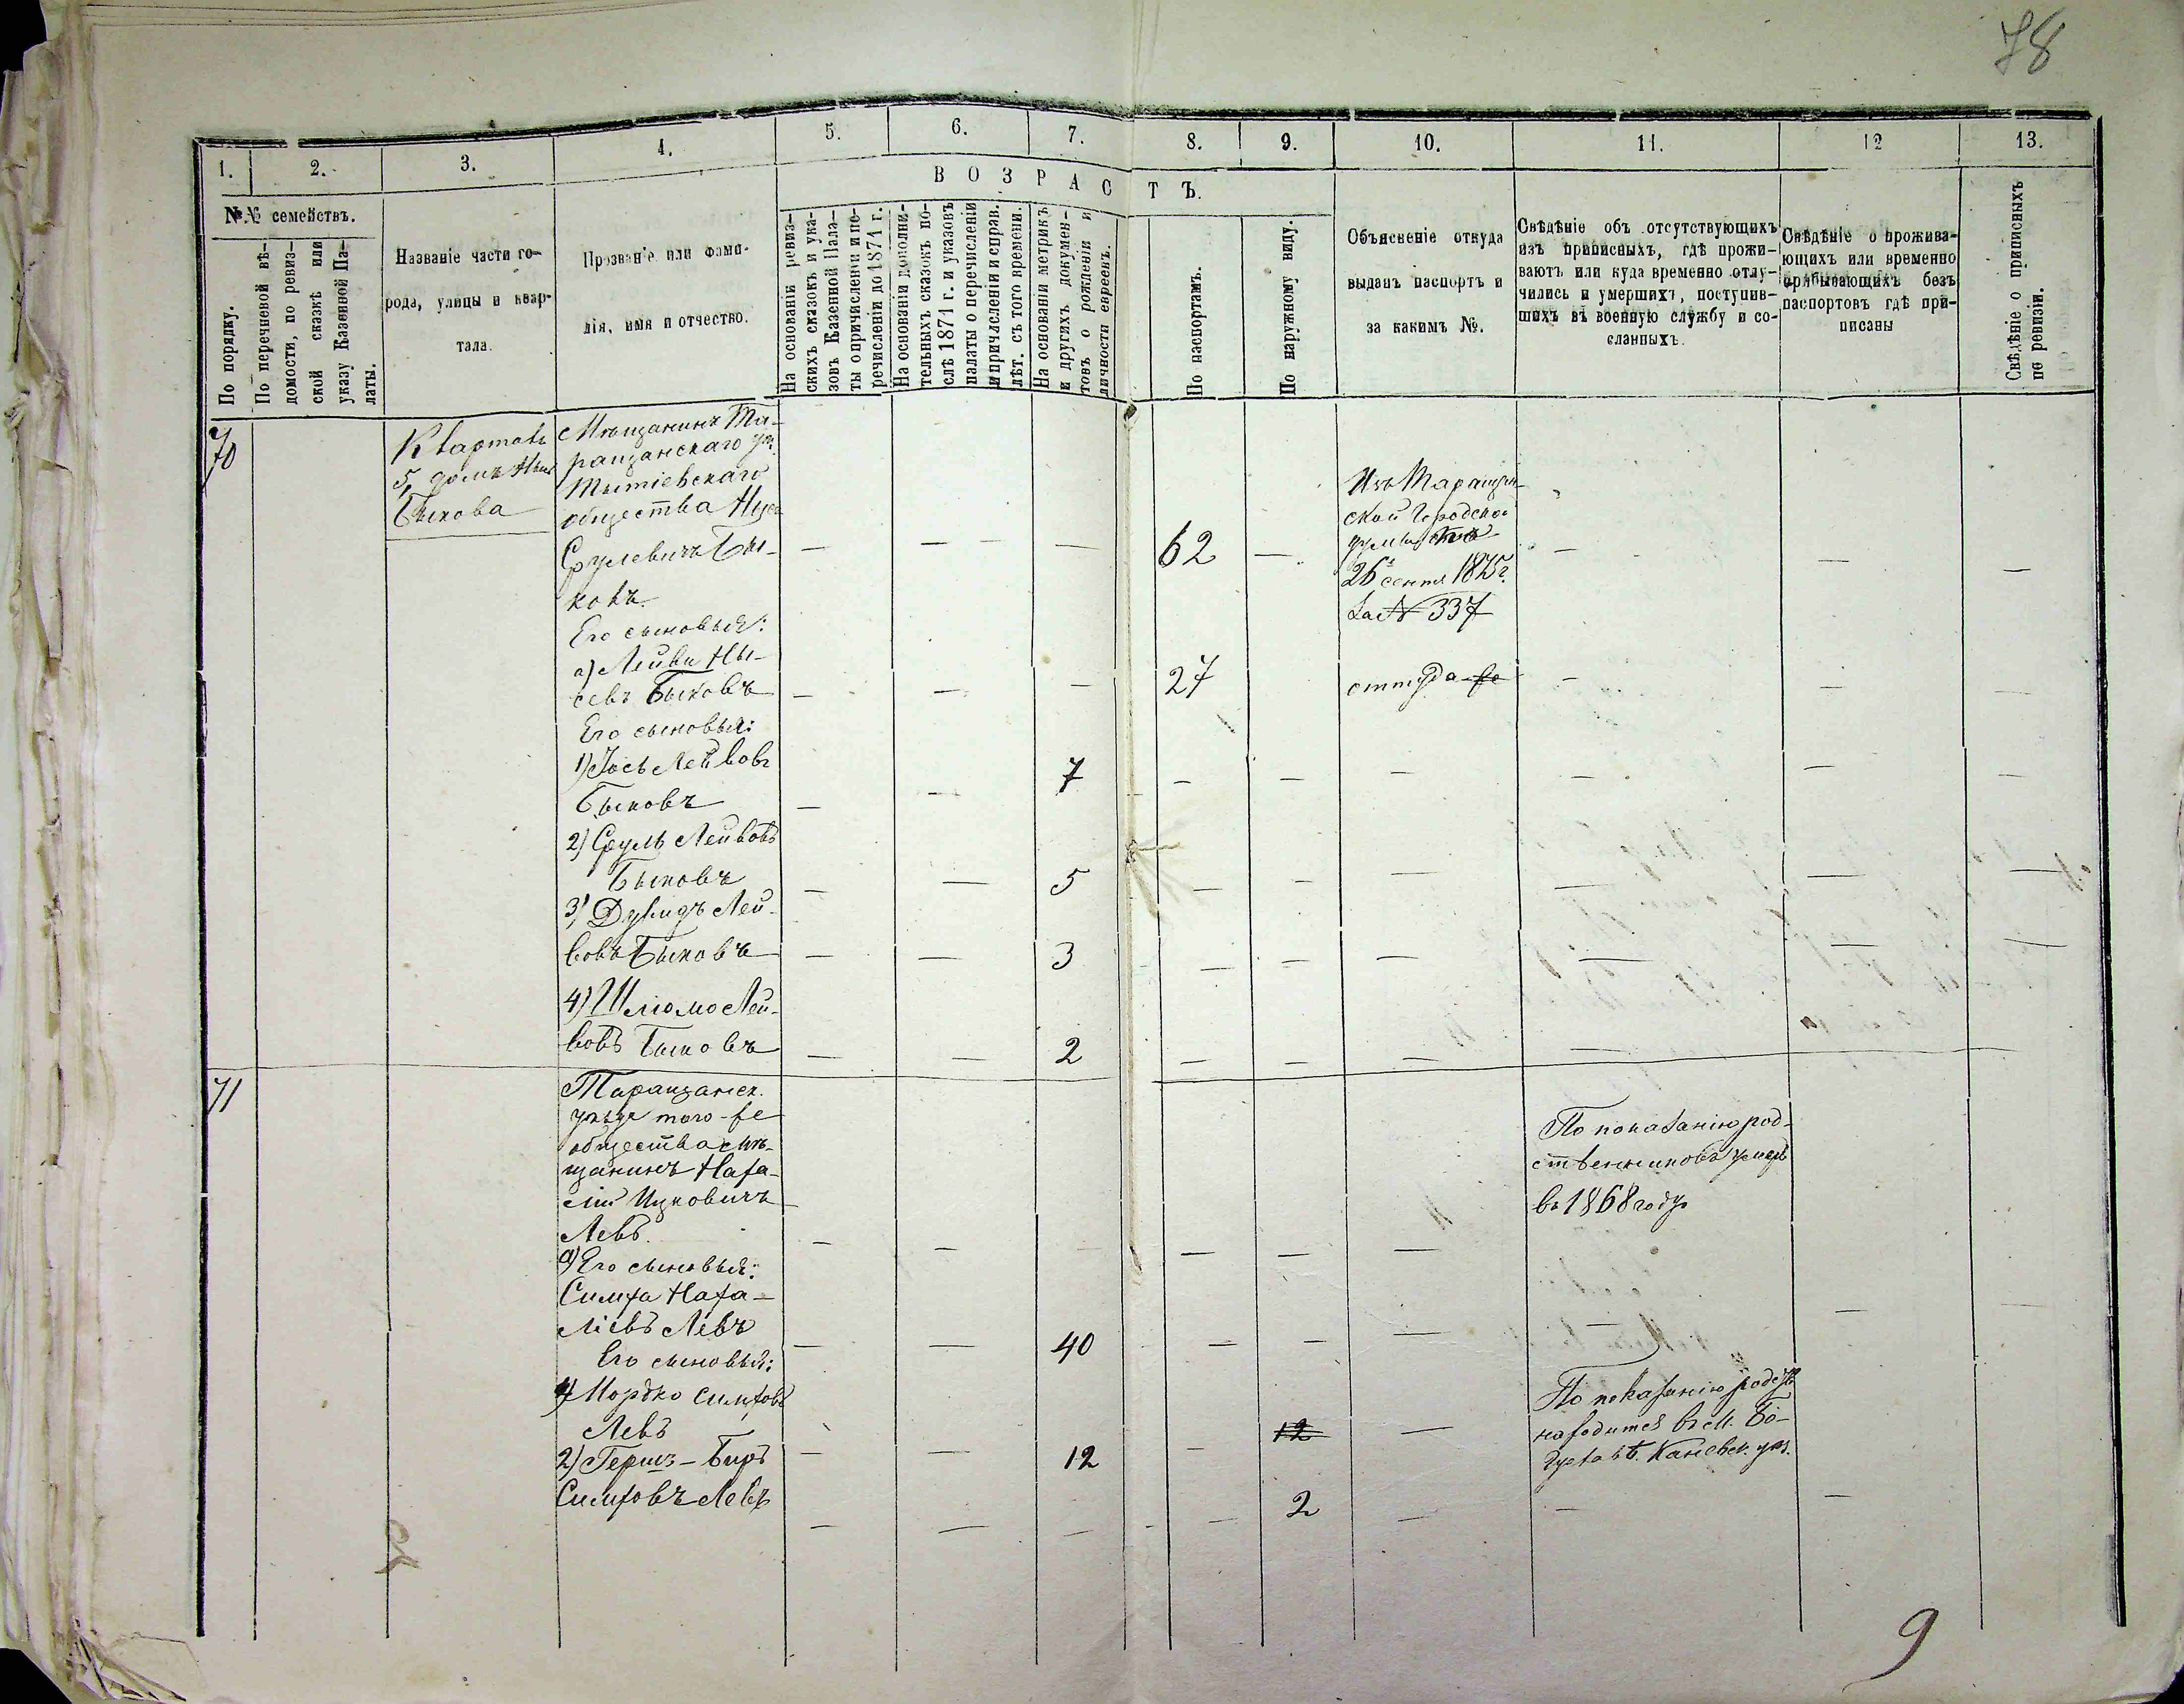 78
1. 2. 3. 4. 5. 6. 7. 8. 9. 10. 11. 12 13.
№№ семействъ.
По порядку.
По перечневой вѣ-
домости, по ревиз-
ской сказкѣ или
указу Казенной Па-
латы.
Названіе части го-
рода, улицы и квар-
тала.
Прозваніе или фами-
лія, имя и отчество.
ВОЗРАСТЪ.
На основаніи ревиз-
скихъ сказокъ и ука-
зовъ Казенной Пала-
ты о причисленіи и пе-
речисленіи до 1871 г.
На основаніи дополни-
тельныхъ сказокъ по-
слѣ 1871 г. и указовъ
палаты о перечисленіи
и причисленіи и справ.
лѣт. съ того времени.
На основаніи метрикъ
и другихъ докумен-
товъ о рожденіи и
личности евреевъ.
По паспортамъ.
По наружному виду.
Объясненіе откуда
выданъ паспортъ и
за какимъ №.
Свѣдѣніе объ отсутствующихъ
изъ приписныхъ, гдѣ прожи-
ваютъ или куда временно отлу-
чились и умершихъ, поступив-
шихъ въ военную службу и со-
сланныхъ.
Свѣдѣніе о прожива-
ющихъ или временно
прибывающихъ безъ
паспортовъ гдѣ при-
писаны
Свѣдѣніе о приписныхъ
по ревизіи.
70
Квартал
5, домъ
Быкова
Мѣщанинъ Та-
ращанскаго уѣз.
Тытіевскаго
общества
Срулевичъ Бы-
ковъ.
— — — 62 —
Изъ Таращан-
ской Городской
думы
26 сентя 1875 г.
За № 337
— — —
Его сыновья:
а) Лейба Ны-
севъ Быковъ
— — — 27 оттуда-же — — —
Его сыновья:
1) Іось Лейбовъ
Быковъ
— — 7 — — — — — —
2) Сруль Лейбовъ
Быковъ
— — 5 — — — — — —
3) Дувидъ Лей-
бовъ Быковъ
— — 3 — — — — — —
4) Шлюмо Лей-
бовъ Быковъ
— — 2 — — — —
71
Таращанск.
уѣзда того-же
общества мѣ-
щанинъ Нафа-
лій Ицковичъ
Левъ.
— — — — — —
По показанію род-
ственниковъ умеръ
въ 1868 году
а) Его сыновья:
Симха Нафа-
ліевъ Левъ
— — 40 — — — — —
Его сыновья:
1) Мордко Симховъ
Левъ
— — 12 — 12 —
По показанію родст.
находится въ м. Бо-
гуславѣ. Каневск. уѣз.
2) Герш-Беръ
Симховъ Левъ
— — — — 2 — — —
9